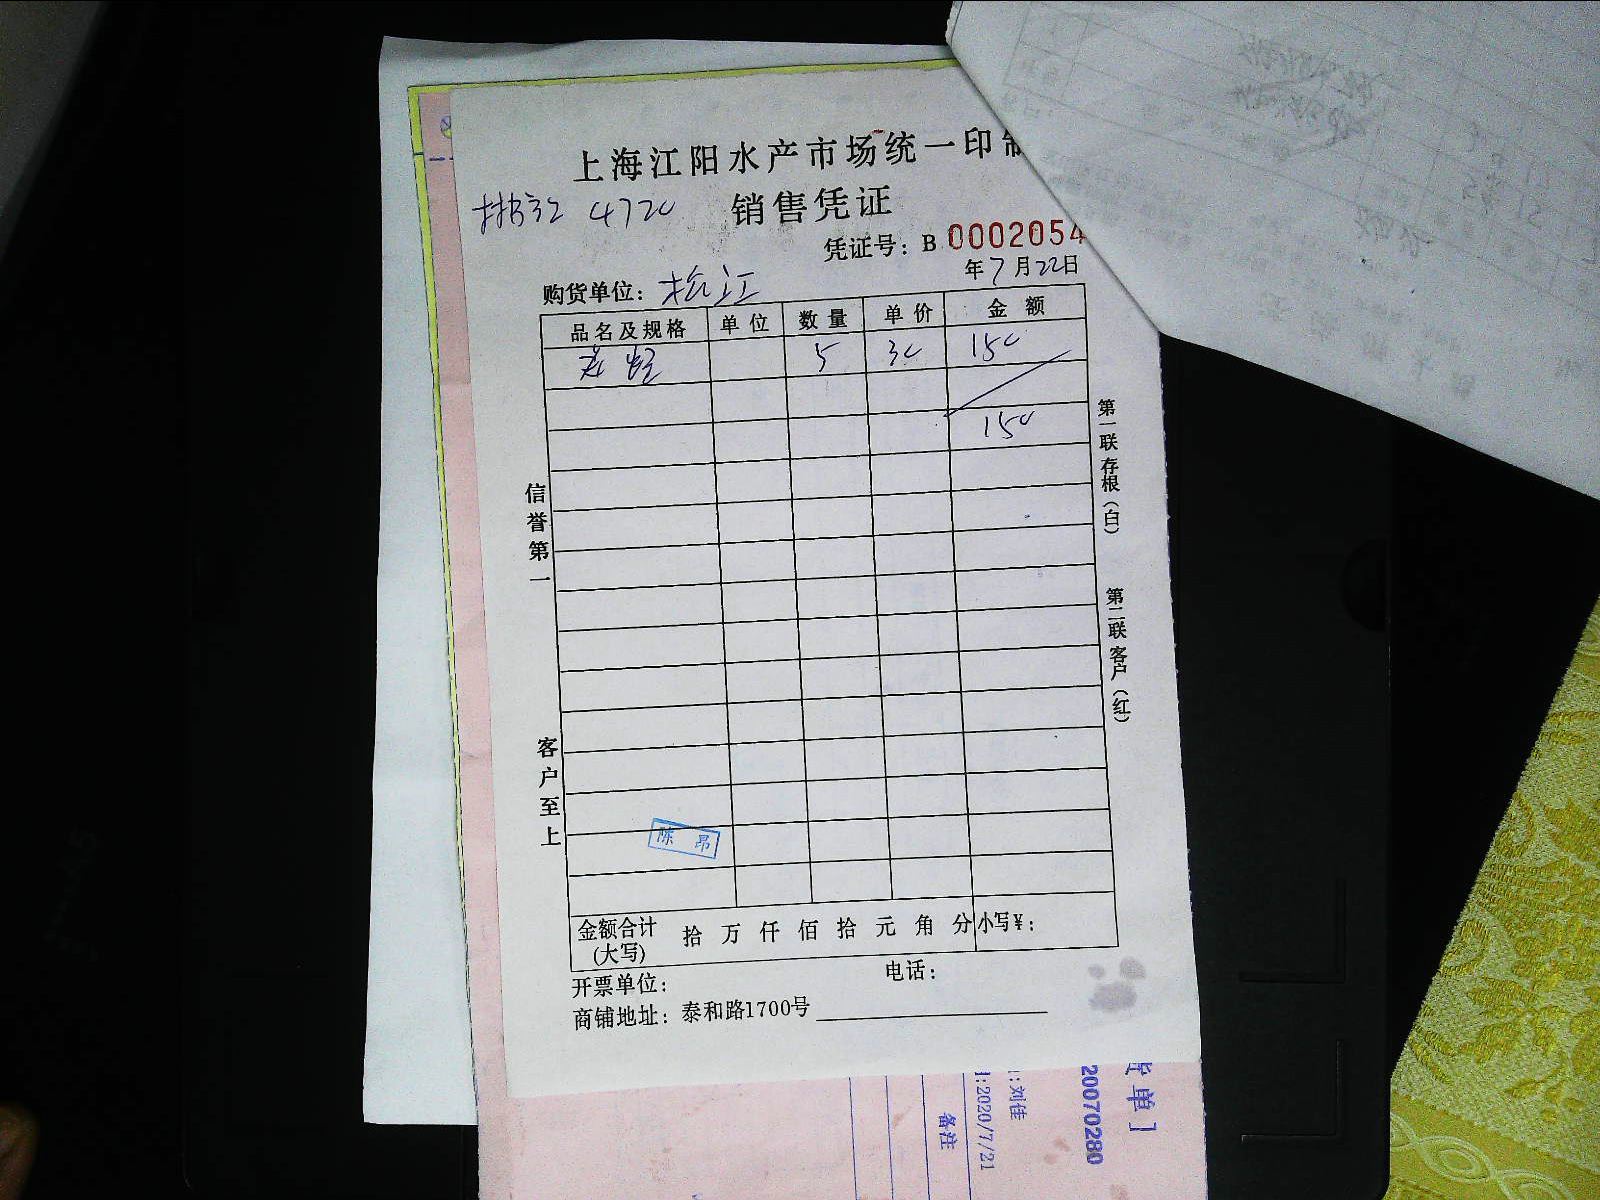 上海江阳水产市场统一印制
4720 销售凭证
凭证号：B 0002054
年7月22日
购货单位：松江
品名及规格 单位 数量 单价 金额
5 30 150
150
信誉第一
客户至上
第一联存根（白）
第二联客户（红）
陈昂
金额合计（大写） 拾 万 仟 佰 拾 元 角 分 小写¥：
开票单位： 电话：
商铺地址：泰和路1700号
单】
20070280
:刘佳
:2020/7/21
备注